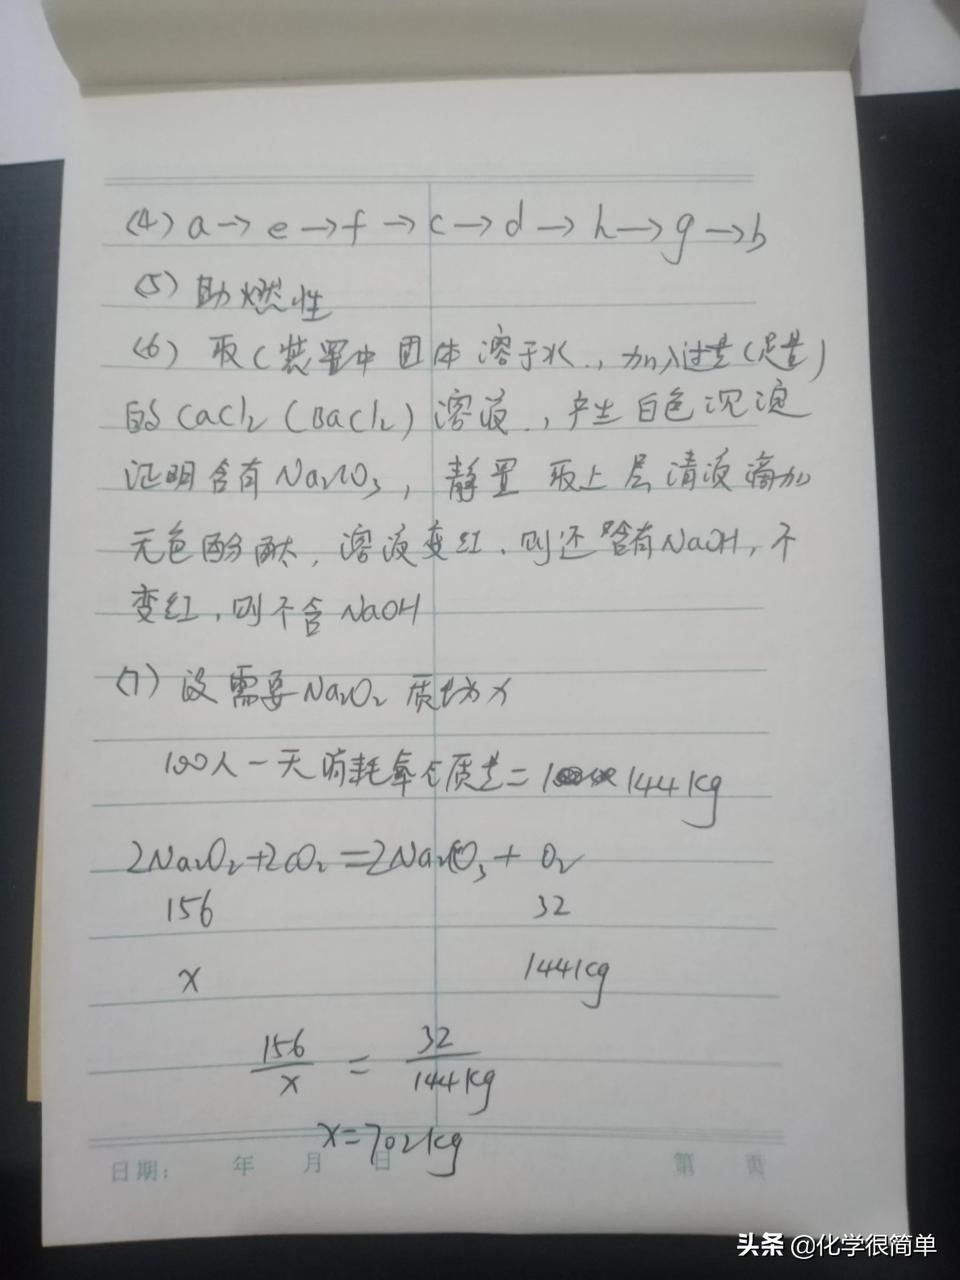 (4) a→e→f→c→d→h→g→b
(5) 助燃性
(6) 取C装置中固体溶于水,加入过量(足量)
的CaCl2(BaCl2)溶液,产生白色沉淀
证明含有Na2CO3,静置取上层清液滴加
无色酚酞,溶液变红,则还含有NaOH,不
变红,则不含NaOH
(7) 设需要Na2O2质量为x
100人一天消耗氧气质量=144kg
2Na2O2+2CO2=2Na2CO3+O2
156 32
x 144kg
156/x = 32/144kg
x=702kg
日期: 年 月 日 第 页
头条 @化学很简单